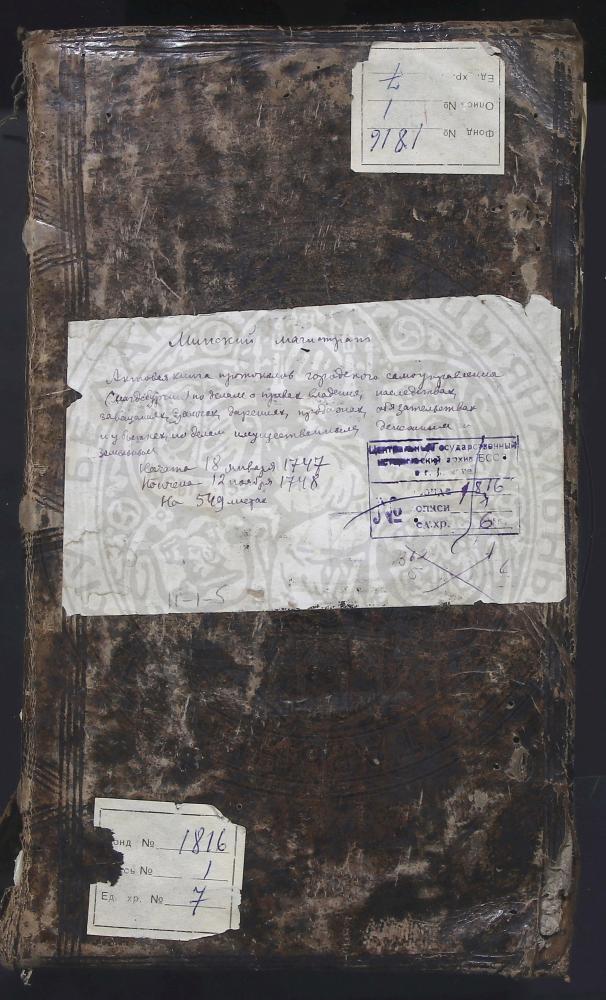 Ед. хр. 7
Опись № 1
Фонд № 1816
Минский магистрат
Актовая книга протоколов городского самоуправления
(магдебургии) по делам о правах владения, наследствах,
завещаниях, дарениях, продажах, обязательствах
и убытках, по делам имущественным, денежным и
земельным
Начата 18 января 1747
Кончена 12 ноября 1748
На 549 листах
Центральный Государственный
исторический архив БССР
в г.
1816
№ описи 1
ед.хр. 6
11-1-5
онд № 1816
сь № 1
Ед. хр. № 7